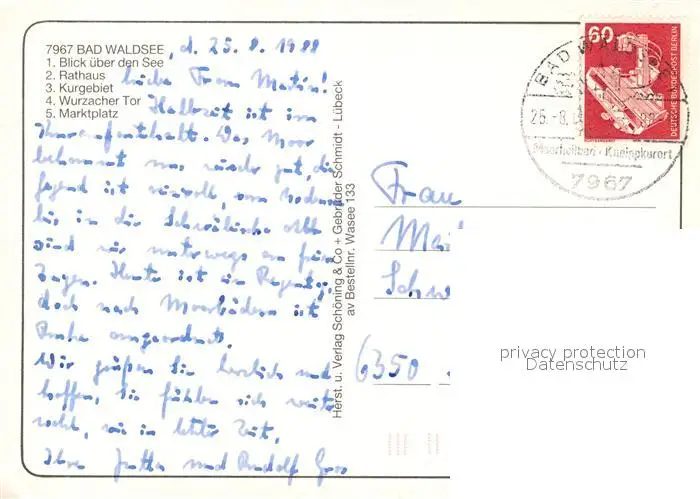 7967 BAD WALDSEE, d. 25.8.1988
1. Blick über den See
2. Rathaus
3. Kurgebiet
4. Wurzacher Tor
5. Marktplatz
Liebe Frau
Halbzeit ist im
Kuraufenthalt. Das Moor
bekommt uns wieder gut, die
Gegend ist reizvoll, vom Bodensee
bis in die Schwäbische Alb
sind wir unterwegs an freien
Tagen. Heute ist ein Regentag,
doch nach Moorbädern ist
Ruhe angeordnet.
Wir grüßen Sie herzlich und
hoffen, Sie fühlen sich weiter
wohl, wie in letzter Zeit,
Ihre Jutta und Rudolf
Herst. u. Verlag Schöning & Co + Gebrüder Schmidt - Lübeck
av Bestellnr. Wasee 133
Frau
6350
60
DEUTSCHE BUNDESPOST BERLIN
BAD WALDSEE
Moorheilbad · Kneippkurort
7967
privacy protection
Datenschutz